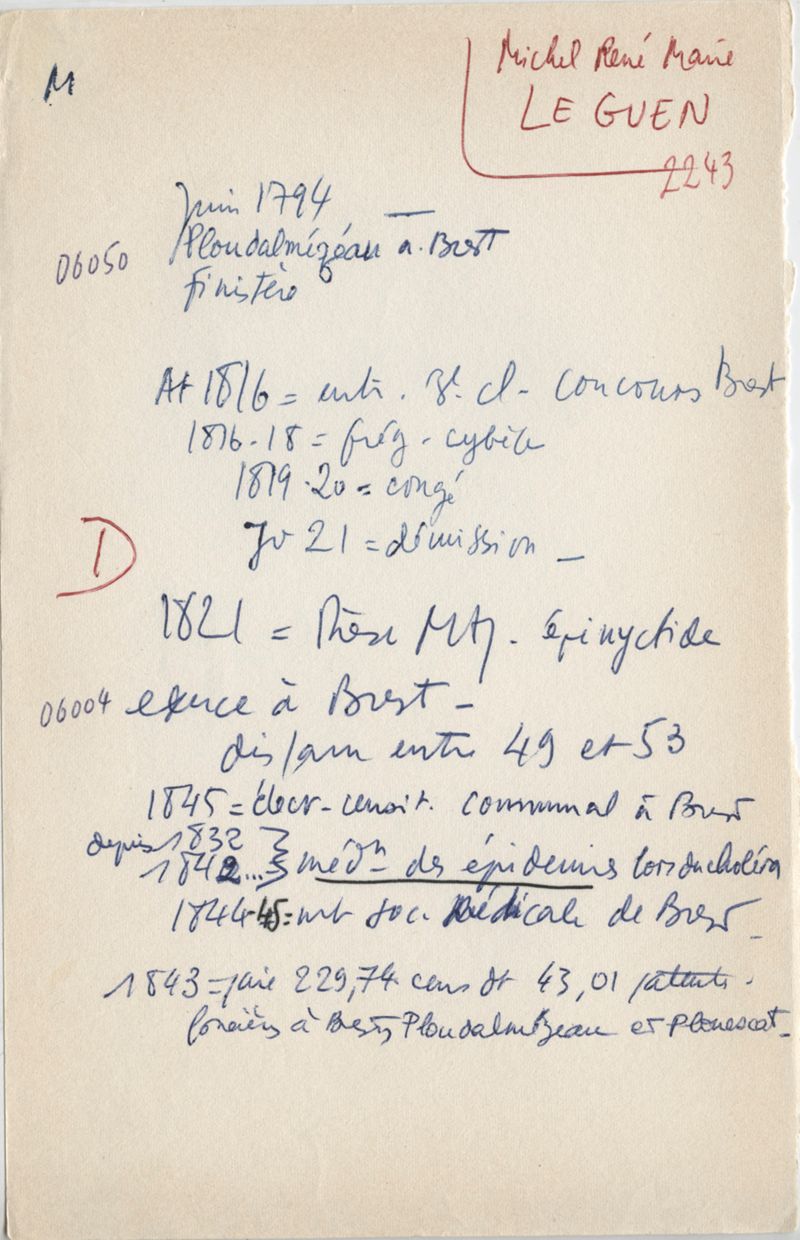 M
Michel René Marie
LE GUEN
2243
Juin 1794 —
06050
Ploudalmézeau à Brest
Finistère
At 1816 = entr. 3e cl - concours Brest
1816-18 = frég - cybèle
1819-20 = congé
Jv 21 = démission —
D
1821 = thèse - épinyctide
06004 exerce à Brest -
disparu entre 49 et 53
1845 = élect- censit. communal à Brest
depuis 1832
1842... méd^n des épidemies lors du choléra
1844-45 = mb soc. Médicale de Brest -
1843 = paie 229,74 cens dt 43,01 patente -
foncières à Brest, Ploudalmézeau et Plouescat -